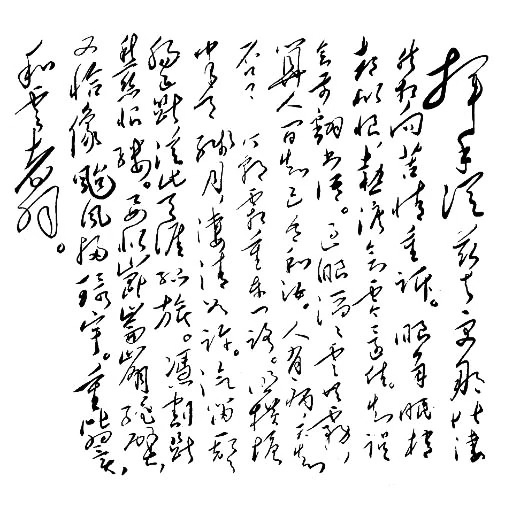 挥手从兹去更那堪凄
然相向苦情重诉。眼角眉梢
都似恨,热泪欲零还住。知误
会前翻书语。过眼滔滔云共雾,
算人间知己吾和汝。人有病,天知
否? 今朝霜重东门路。照横塘
半天残月,凄清如许。汽笛一声
肠已断,从此天涯孤旅。凭割断
愁丝恨缕。要似崑崙崩绝壁,
又恰像颱风扫寰宇。重比翼,
和云翥。